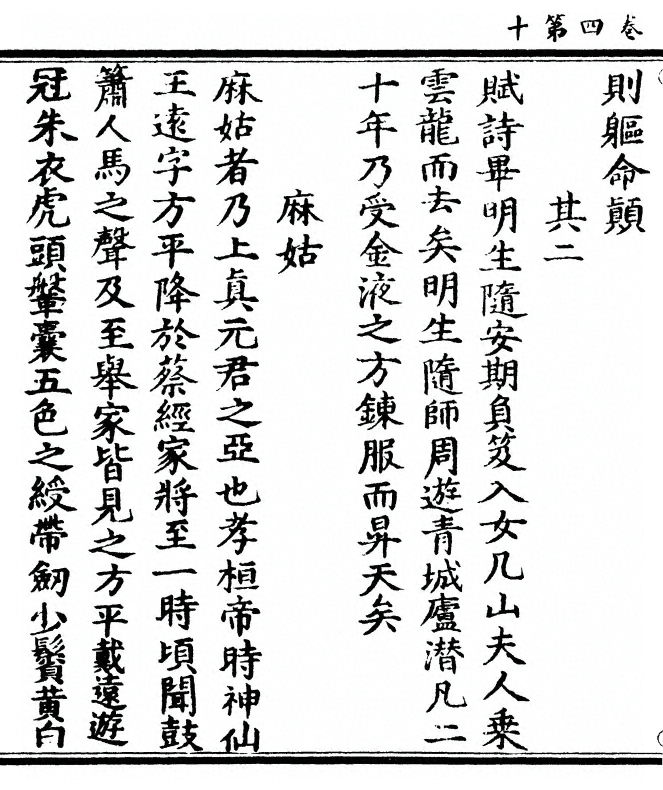 卷四第十
則軀命顚
其二
賦詩畢明生隨安期負笈入女几山夫人乗
雲龍而去矣明生隨師周遊青城廬潜凡二
十年乃受金液之方鍊服而昇天矣
麻姑
麻姑者乃上眞元君之亞也孝桓帝時神仙
王遠字方平降於蔡經家將至一時頃聞鼓
簫人馬之聲及至舉家皆見之方平戴遠遊
冠朱衣虎頭鞶囊五色之綬帶劒少鬚黄白